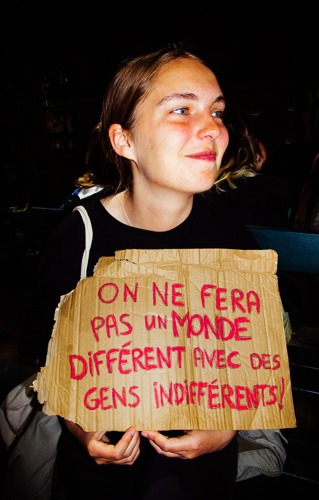 ON NE FERA
PAS UN MONDE
DIFFÉRENT AVEC DES
GENS INDIFFÉRENTS!